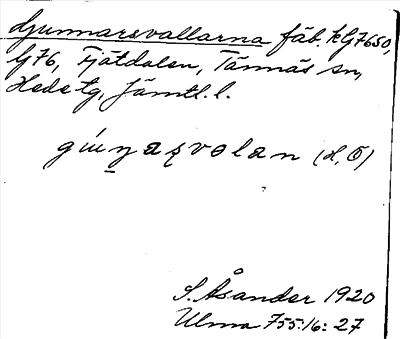 Gunnarsvallarna fäb. kG7650,
lG76, Fjätdalen, Tännäs sn,
Hede tg, Jämtl. l.
(H, Ö)
S. Åsander 1920
Ulma 755:16: 27